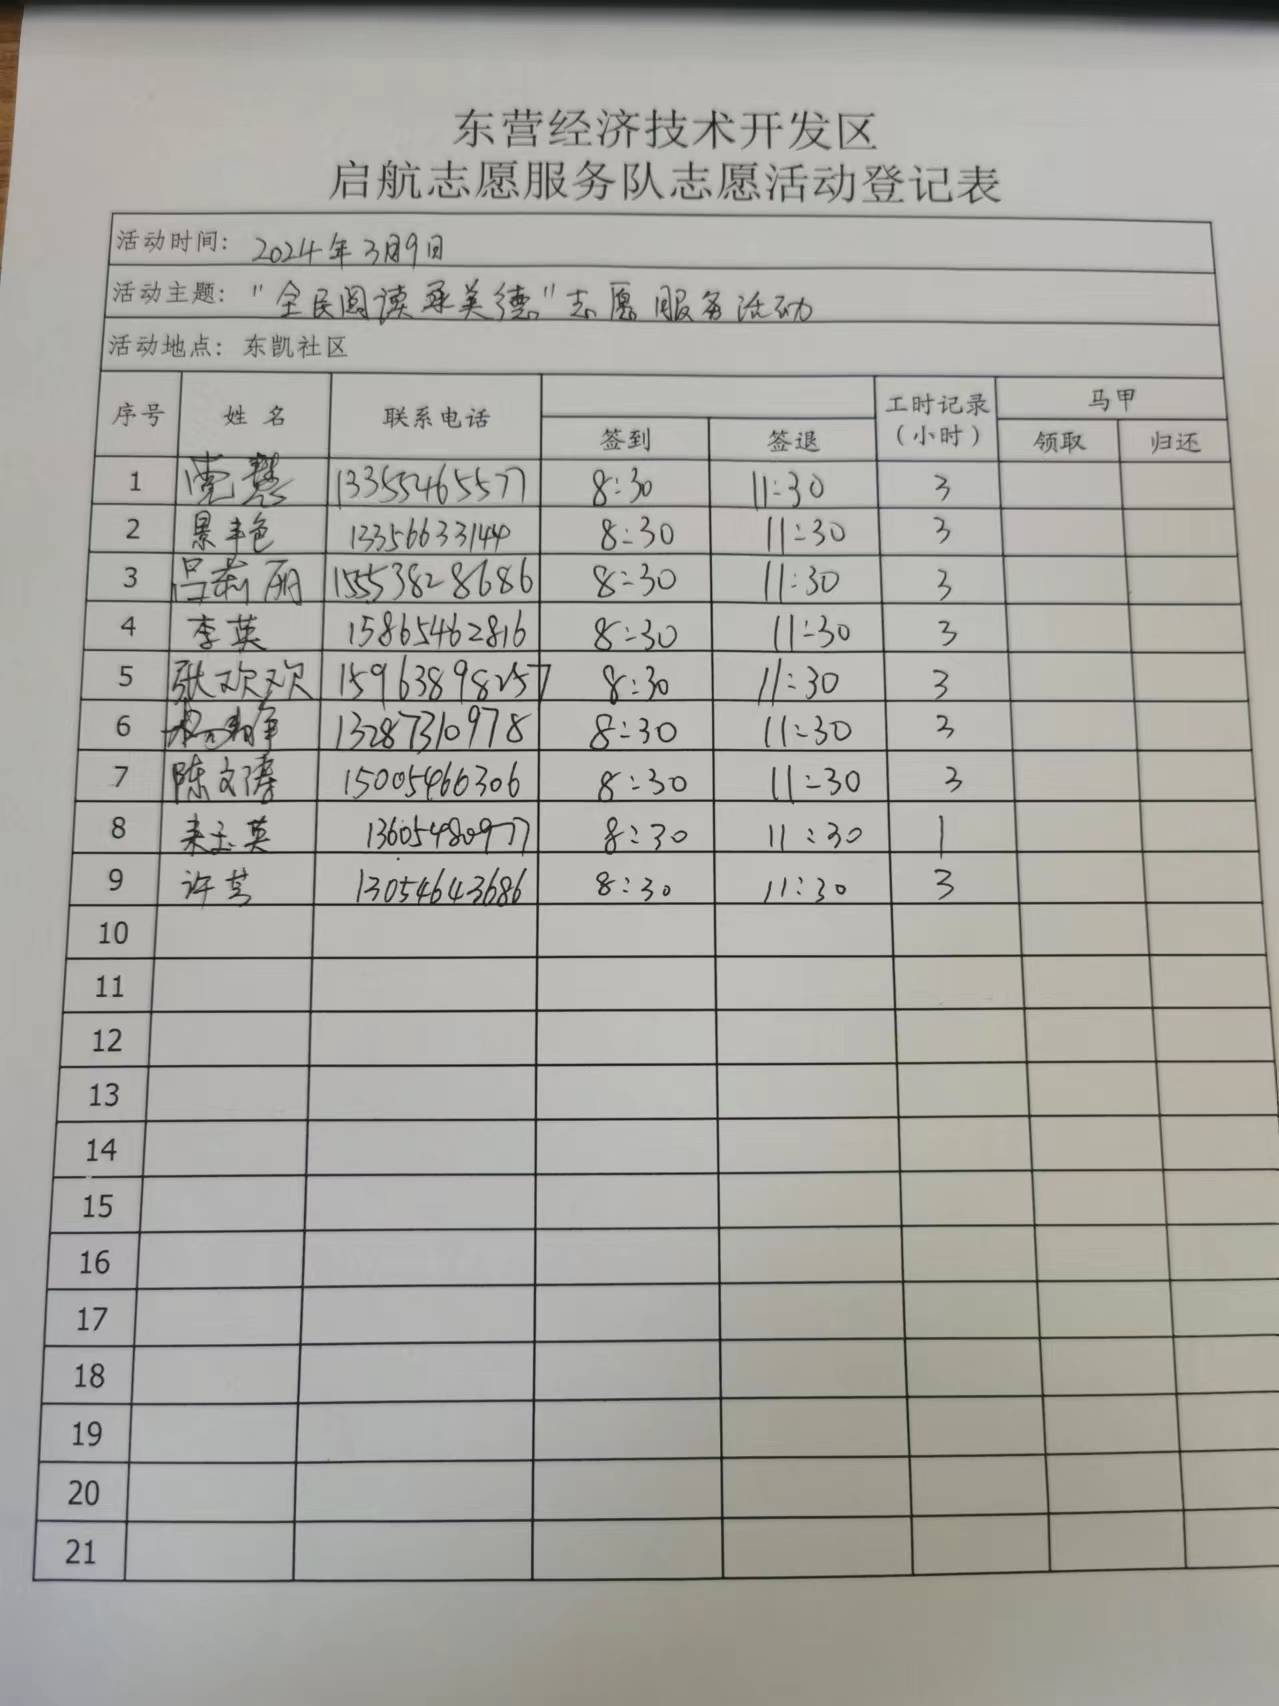 东营经济技术开发区
启航志愿服务队志愿活动登记表
活动时间： 2024年3月9日
活动主题： "全民阅读承美德"志愿服务活动
活动地点： 东凯社区
序号 姓名 联系电话 签到 签退 工时记录（小时） 马甲 领取 归还
1 13355465577 8:30 11:30 3
2 景丰色 13356633144 8:30 11:30 3
3 吕莉丽 1553828686 8:30 11:30 3
4 李英 15865462816 8:30 11:30 3
5 张欢欢 15963898257 8:30 11:30 3
6 13287310978 8:30 11:30 3
7 陈文涛 15005466306 8:30 11:30 3
8 来玉英 13605480977 8:30 11:30 1
9 许芸 13054643686 8:30 11:30 3
10
11
12
13
14
15
16
17
18
19
20
21